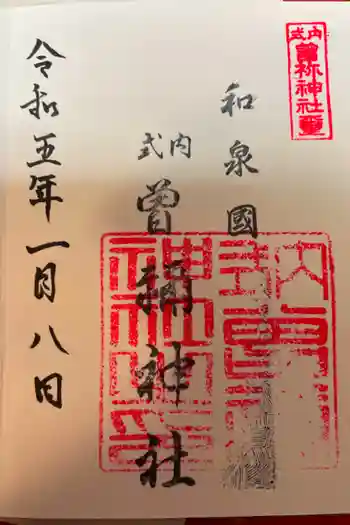 式内
曽祢神社璽
和泉國
式内
曽禰神社
令和五年一月八日